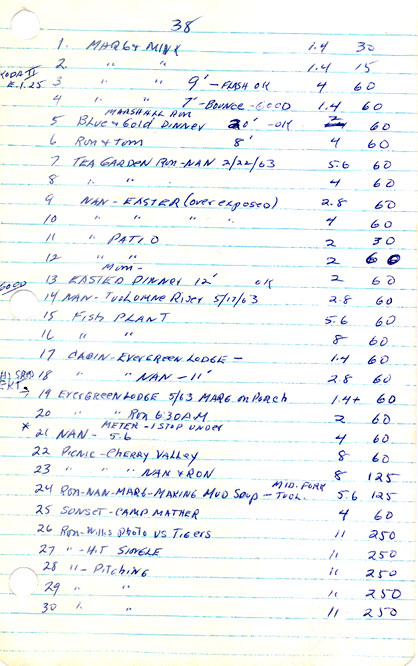 38
1. MARG & MINX 1.4 30
2. " " 1.4 15
KODA II
E.I.25
3 " " 9' - FLASH OK 4 60
4 " " 7' - BOUNCE - GOOD 1.4 60
MARSHALL Ron
5 Blue & Gold DINNEY 20' - OK 2 60
6 Ron & Tom 8' 4 60
7 TEA GARDEN RON-NAN 2/22/63 5.6 60
8 " " 4 60
9 NAN - EASTER (over exposed) 2.8 60
10 " " " " 4 60
11 " PATIO 2 30
12 " " 2 60
Mom -
13 EASTER DINNER 12' OK 2 60
GOOD
14 NAN - TUOLOMNE RIVER 5/17/63 2.8 60
15 FISH PLANT 5.6 60
16 " " 8 60
17 CABIN - EVERGREEN LODGE - 1.4 60
HI SPED
EKT.
18 " " NAN - 11' 2.8 60
→ 19 EVERGREEN LODGE 5/63 MARG. on PORCH 1.4+ 60
20 " " Ron 6:30 A.M 2 60
* METER - 1 STOP UNDER
21 NAN - 5.6 4 60
22 PICNIC - CHERRY VALLEY 8 60
23 " " " NAN & RON 8 125
MID. FORK
24 RON-NAN-MARG - MAKING MUD SOUP - TUOL. 5.6 125
25 SUNSET - CAMP MATHER 4 60
26 Ron - Willis photo VS Tigers 11 250
27 " - HIT SINGLE 11 250
28 " - PITCHING 11 250
29 " " 11 250
30 " " 11 250